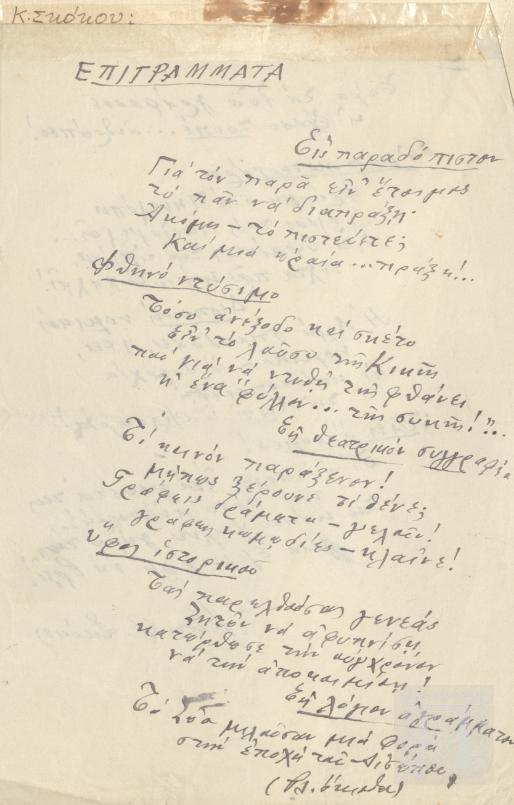 Κ. Σκόκου:
ΕΠΙΓΡΑΜΜΑΤΑ
Εἰς παραδόπιστον
Γιά τόν παρᾶ εἶν' ἕτοιμος
τό πᾶν νά διαπράξῃ·
Ἀκόμη – τό πιστεύετε;
Καί μιά ὡραία... πράξη!..
Φθηνό ντύσιμο
Τόσο ἀνέξοδο καί σκέτο
εἶν' τό λοῦσο τῆς Κικῆς
πού γιά νά ντυθῇ τῆς φθάνει
κ' ἕνα φύλλον... τῆς συκῆς!...
Εἰς θεατρικόν συγγραφέα
Τί κοινόν παράξενον!
Μήπως ξέρουνε τί θένε;
Γράφεις δράματα – γελοῦν!
γράφεις κωμῳδίες – κλαῖνε!
Ὕφος ἱστορικοῦ
Τάς παρελθούσας γενεάς
ζητῶν νά ἀφυπνίσῃ
κατώρθωσε τήν σύγχρονον
νά τήν ἀποκοιμίσῃ!
Εἰς λόγιον ἀγράμματον
Τά ζῶα μιλοῦσαν μιά φορά
στήν ἐποχή τοῦ Αἰσώπου,